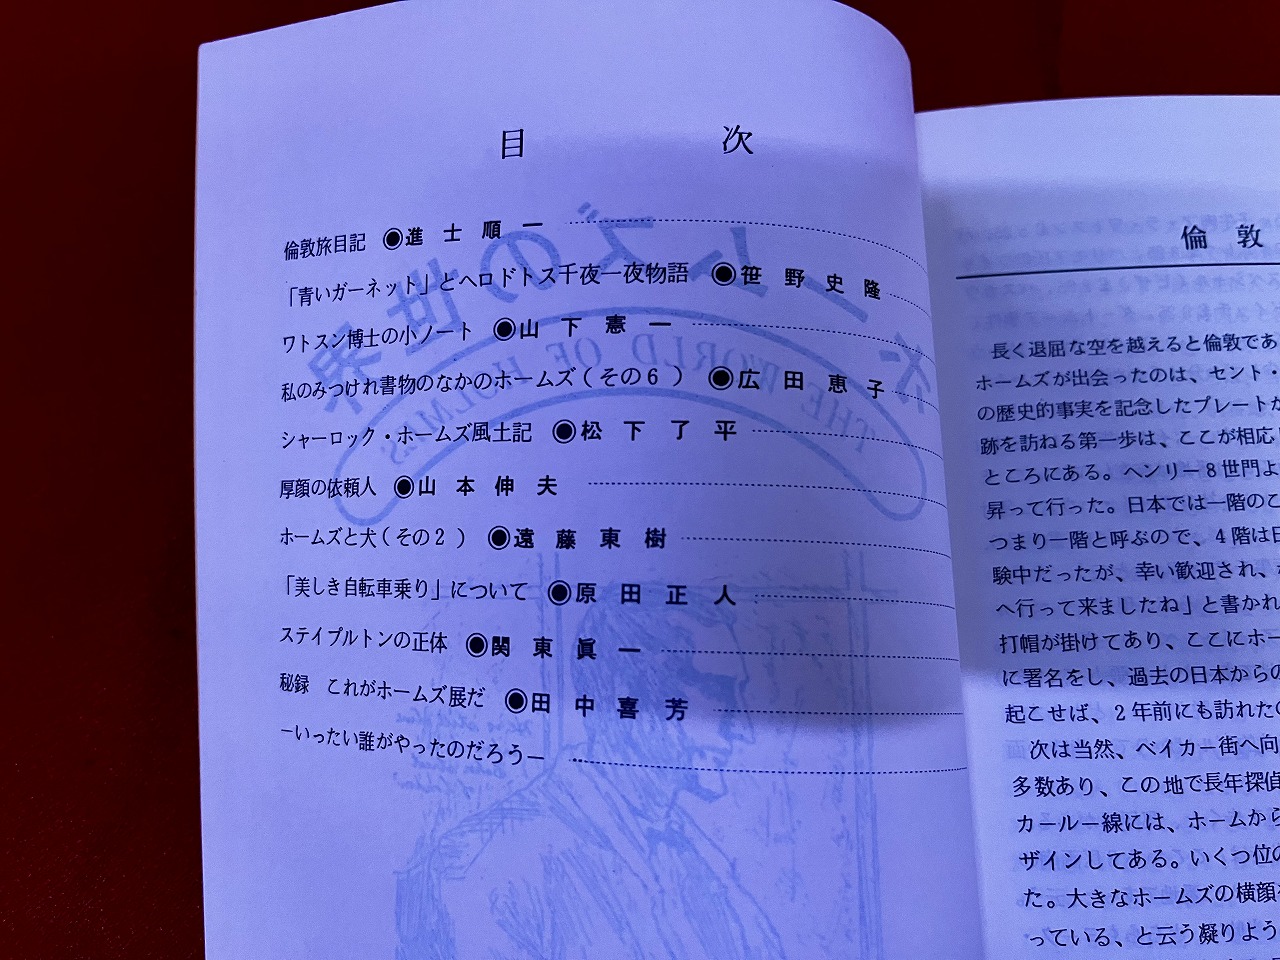 目次
倫敦旅日記 ◉進士順一
「青いガーネット」とヘロドトス千夜一夜物語 ◉笹野史隆
ワトスン博士の小ノート ◉山下憲一
私のみつけれ書物のなかのホームズ(その6) ◉広田恵子
シャーロック・ホームズ風土記 ◉松下了平
厚顔の依頼人 ◉山本伸夫
ホームズと犬(その2) ◉遠藤東樹
「美しき自転車乗り」について ◉原田正人
ステイプルトンの正体 ◉関東眞一
秘録 これがホームズ展だ ◉田中喜芳
−いったい誰がやったのだろう−
倫敦
長く退屈な空を越えると倫敦であ
ホームズが出会ったのは、セント・
の歴史的事実を記念したプレートが
跡を訪ねる第一歩は、ここが相応し
ところにある。ヘンリー8世門よ
昇って行った。日本では一階のこ
つまり一階と呼ぶので、4階は日
験中だったが、幸い歓迎され、
へ行って来ましたね」と書かれ
打帽が掛けてあり、ここにホー
に署名をし、過去の日本からの
起こせば、2年前にも訪れたの
次は当然、ベイカー街へ向
多数あり、この地で長年探偵
カールー線には、ホームから
ザインしてある。いくつ位の
た。大きなホームズの横顔
っている、と云う凝りよう
ホームズの世界
THE WORLD OF HOLMES